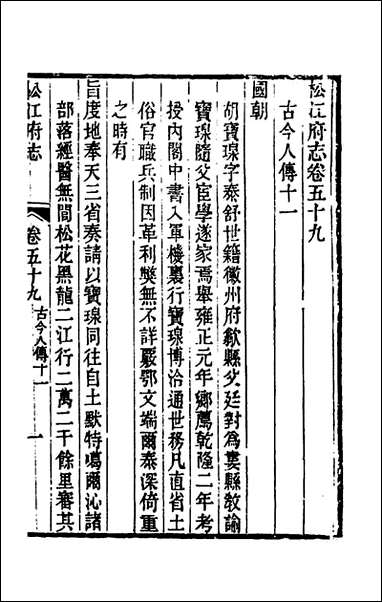 松江府志卷五十九
古今人傳十一
國朝
胡寶瑔字泰舒世籍徽州府歙縣父廷對爲婁縣教諭
寶瑔隨父宦學遂家焉舉雍正元年鄉薦乾隆二年考
授內閣中書入軍機裏行寶瑔博洽通世務凡直省土
俗官職兵制因革利獘無不詳覈鄂文端爾泰深倚重
之時有
旨度地奉天三省奏請以寶瑔同往自土默特噶爾沁諸
部落經醫無閭松花黑龍二江行二萬二千餘里審其
松江府志
卷五十九
古今人傳十一
一